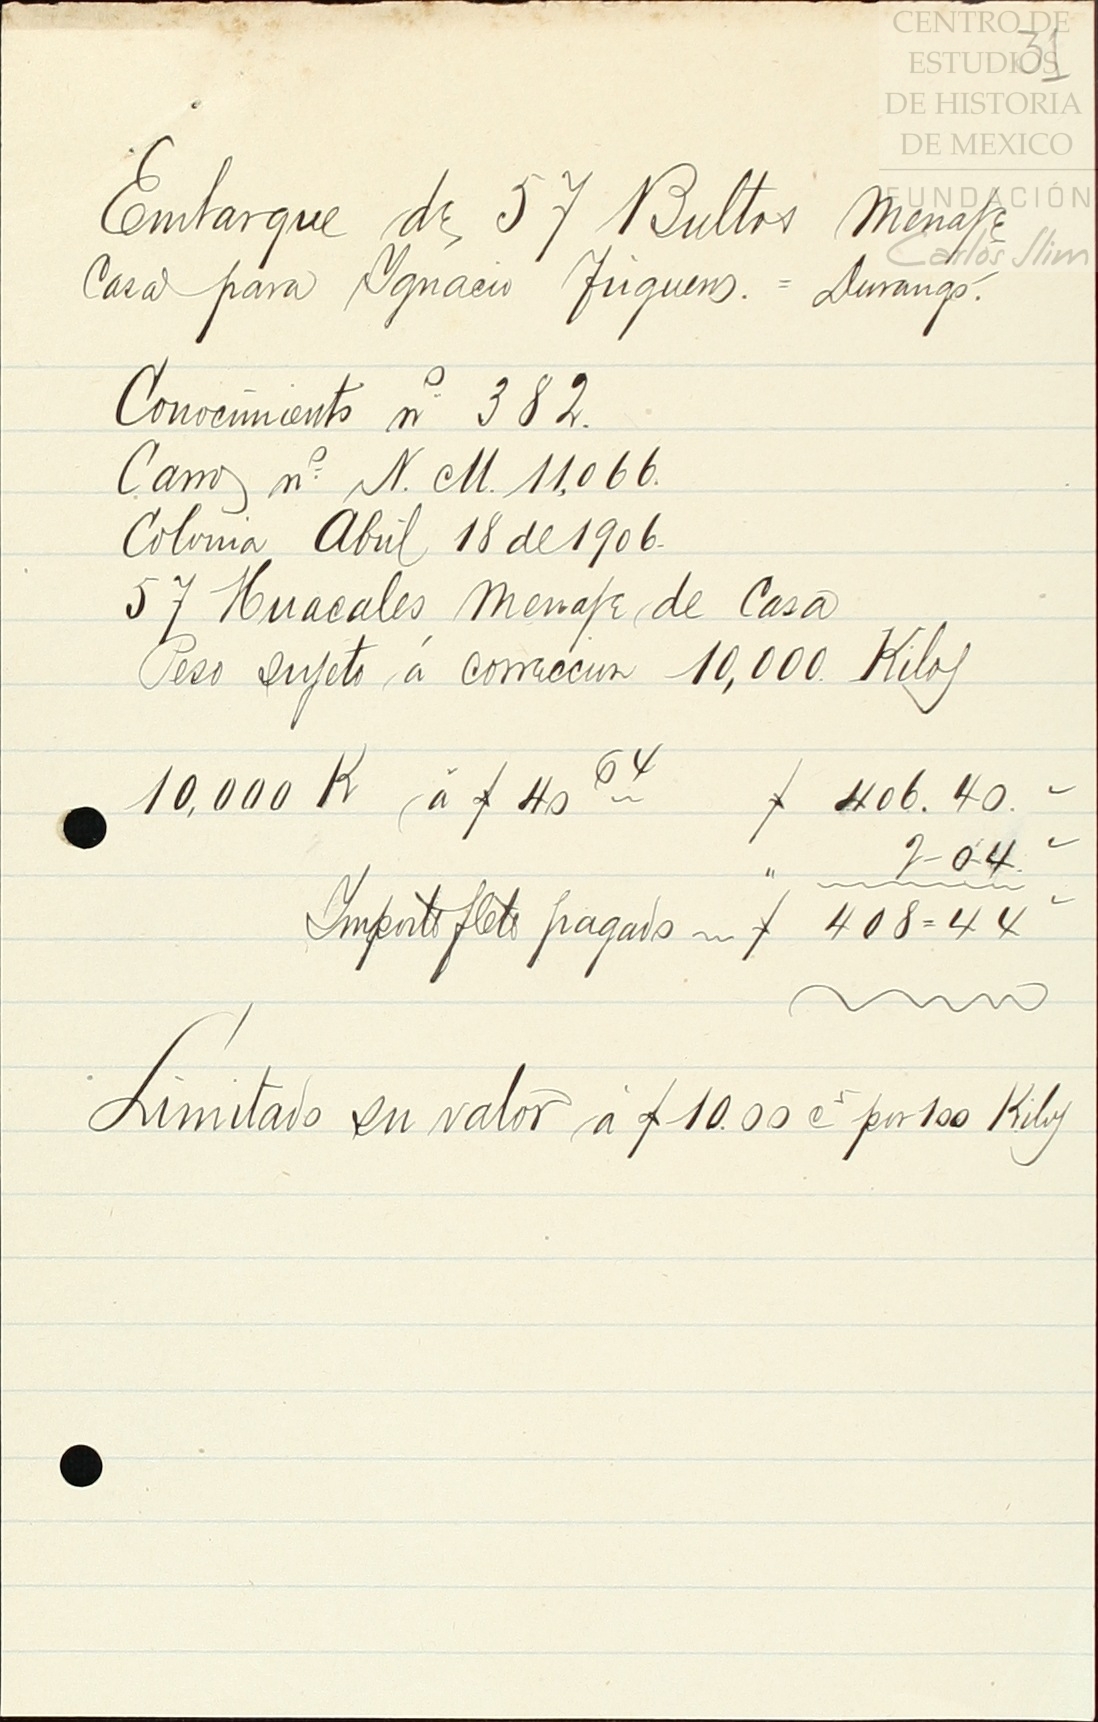 CENTRO DE
ESTUDIOS
DE HISTORIA
DE MEXICO
FUNDACIÓN
Carlos Slim
31
Embarque de 57 Bultos Menaje
Casa para Ygnacio = Durango.
Conocimiento nº 382.
Carro nº N. M. 11,066.
Colonia Abril 18 de 1906.
57 Huacales Menaje de Casa
Peso sujeto á correccion 10,000. Kilos
10,000 K á $ 40 64 $ 406.40.
" 2-04.
Importe flete pagado $ 408=44
Limitado su valor á $10.00 cs por 100 Kilos